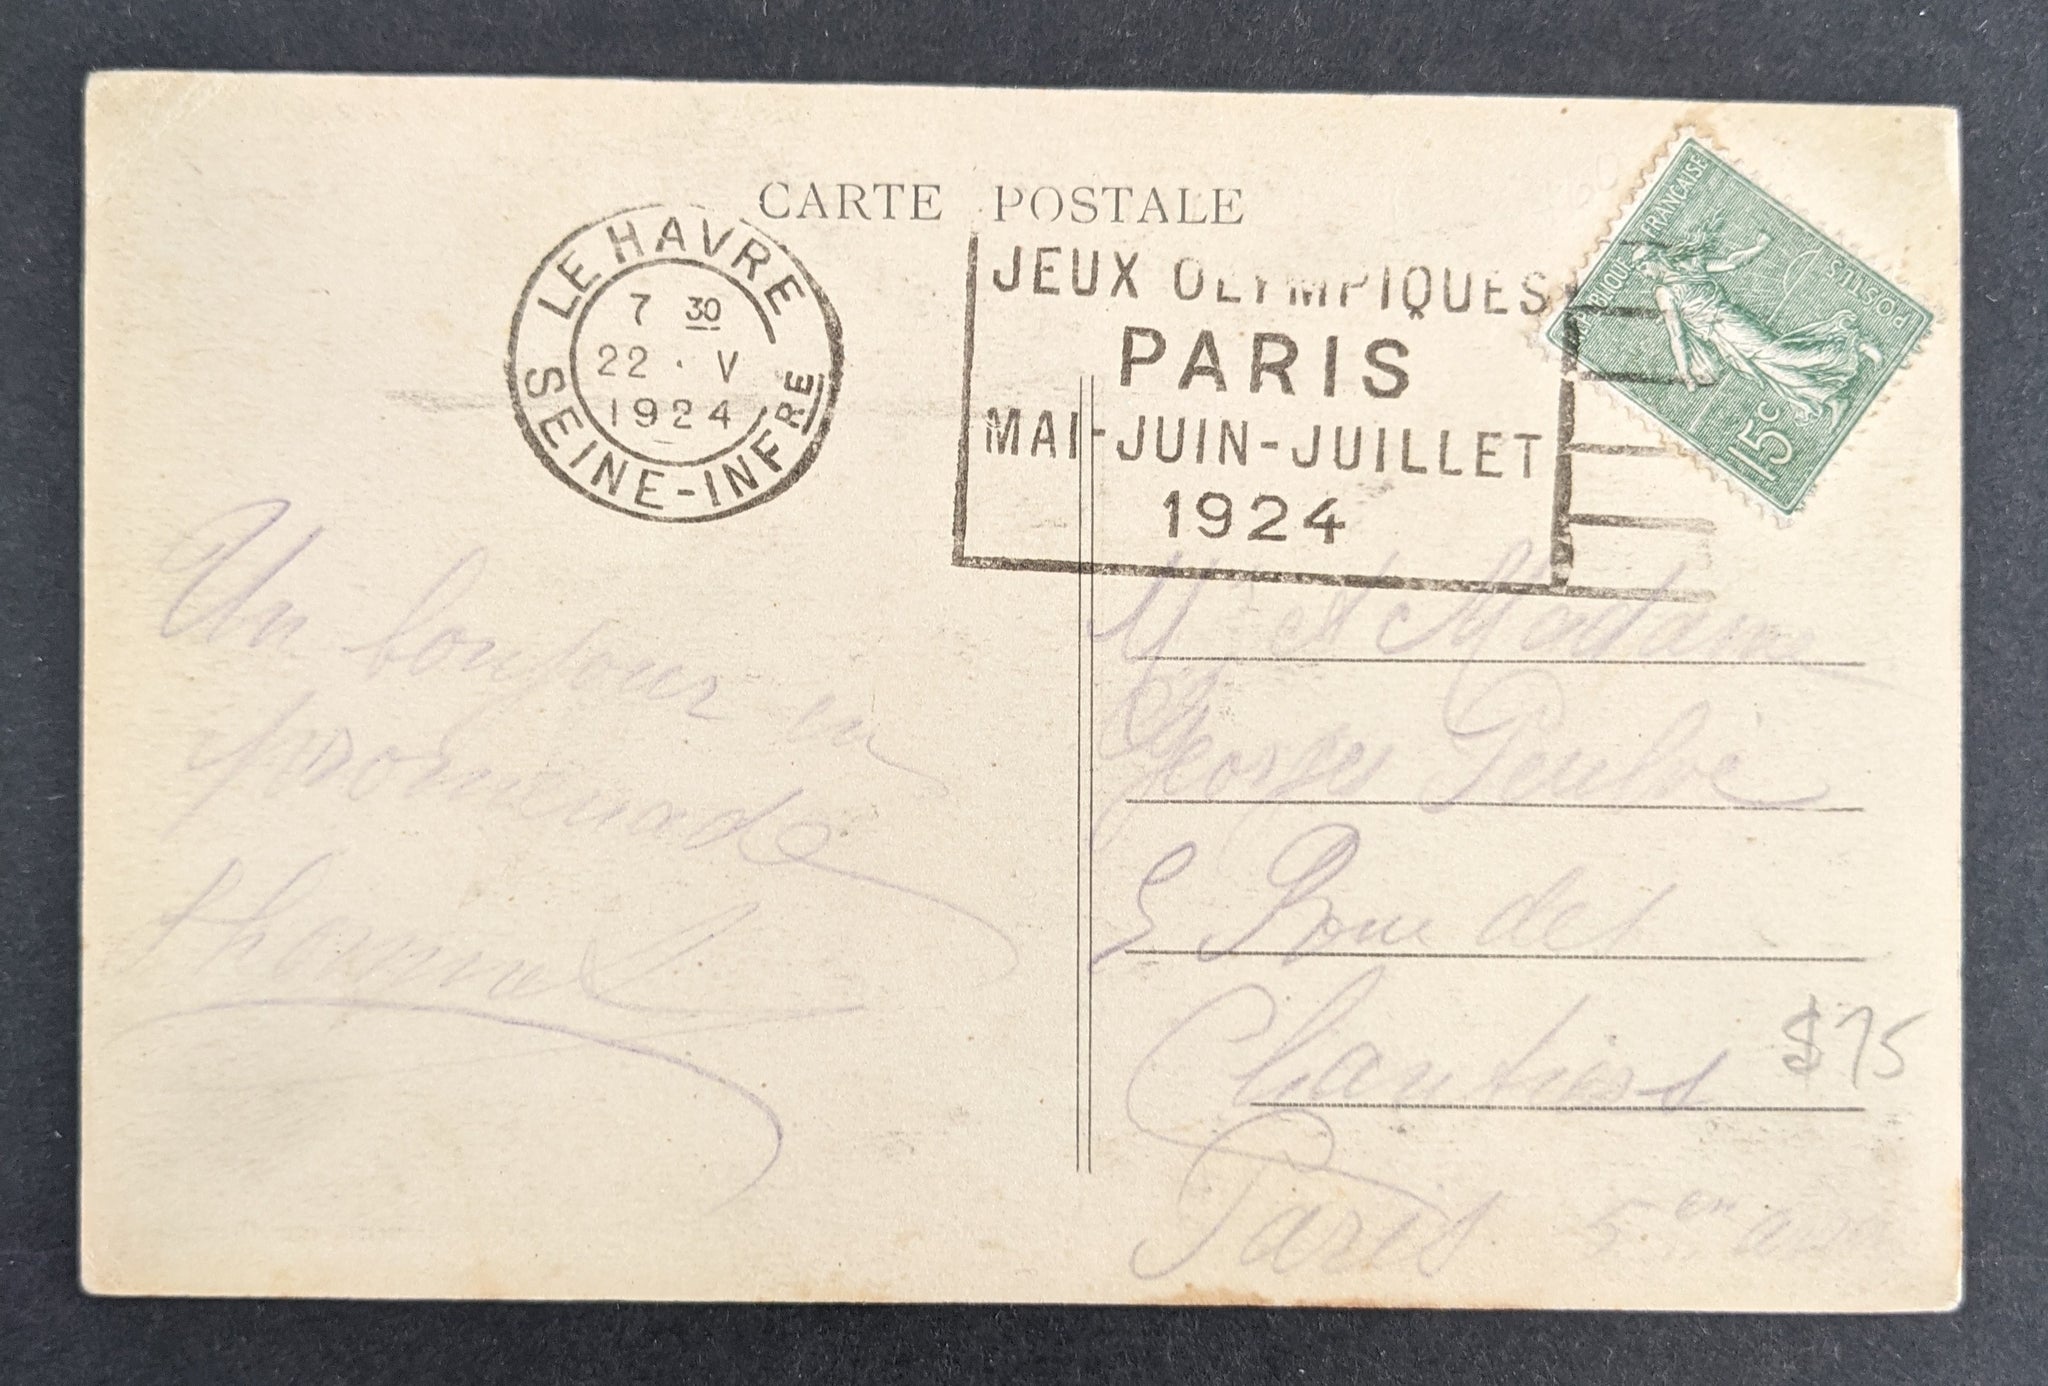 CARTE POSTALE
LE HAVRE
7 30
22 · V
1924
SEINE-INFRE
JEUX OLYMPIQUES
PARIS
MAI-JUIN-JUILLET
1924
RÉPUBLIQUE FRANÇAISE
POSTES
15c
Un bonjour en
promenade
Mr et Madame
Georges
5 Rue des
Chantiers
$75
Paris 5em